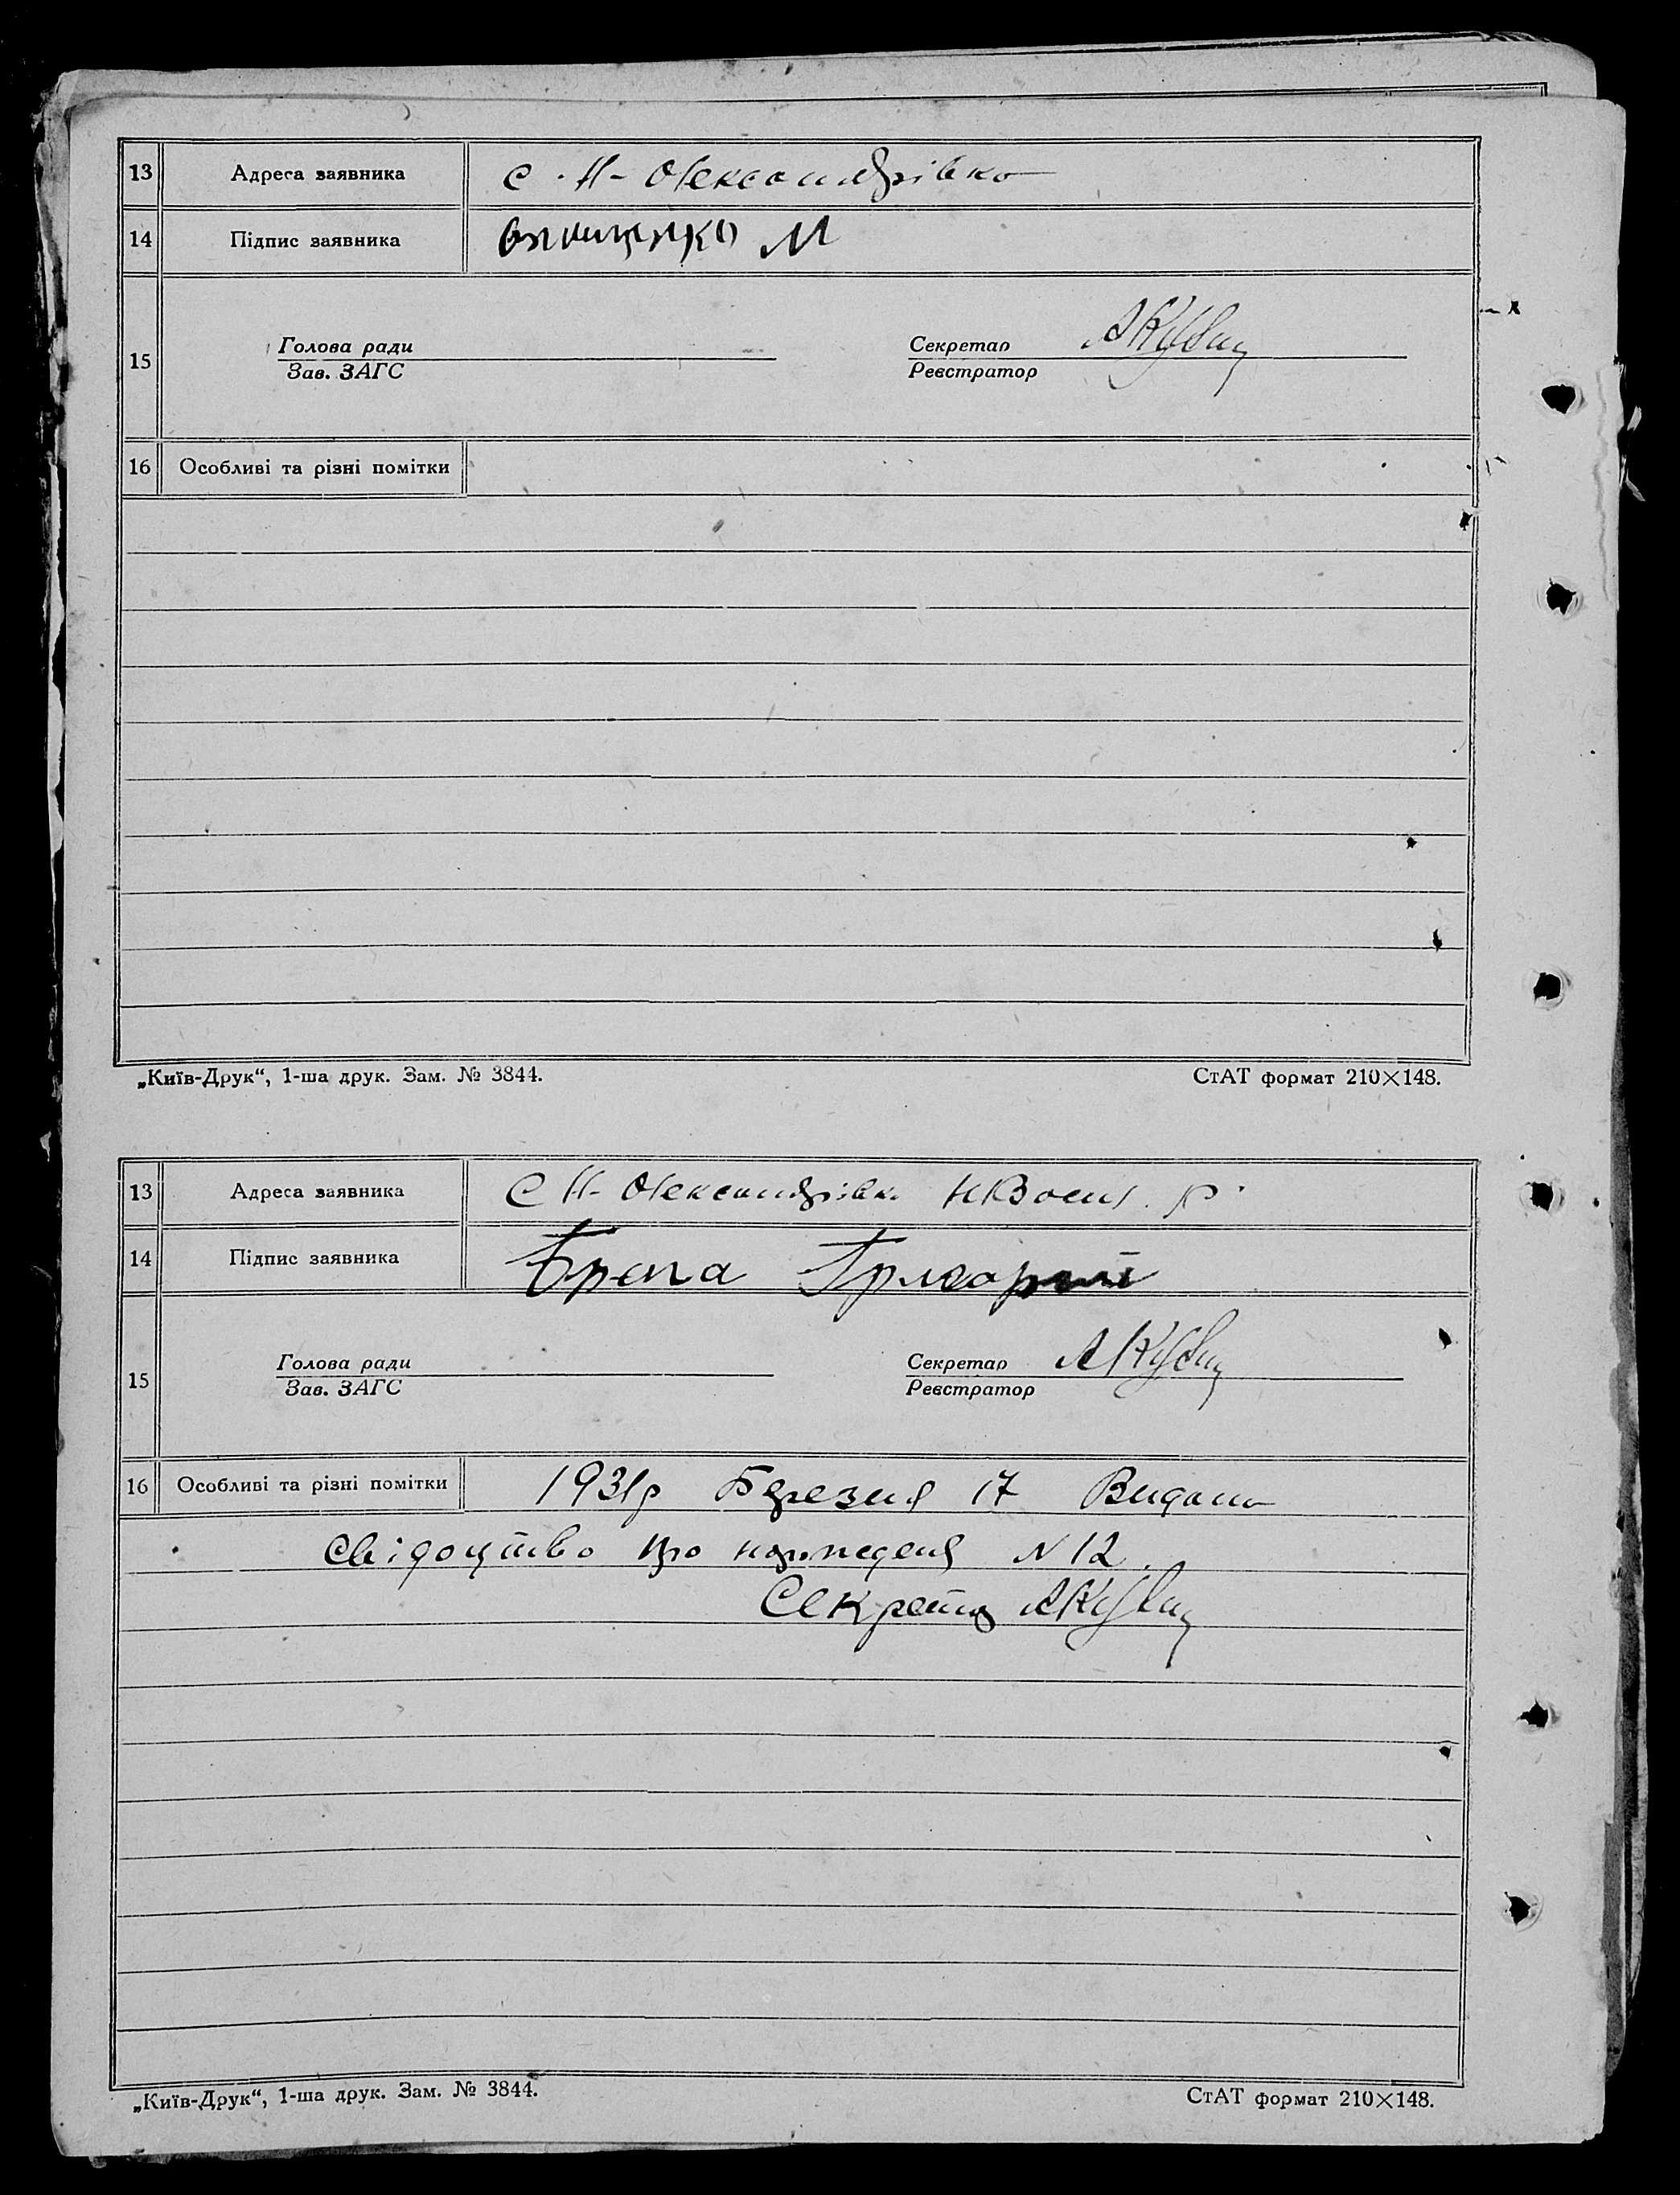 13 Адреса заявника с. Н-Олександрівка
14 Підпис заявника М
15 Голова ради Секретар
Зав. ЗАГС Реєстратор
16 Особливі та різні помітки
„Київ-Друк“, 1-ша друк. Зам. № 3844. СтАТ формат 210×148.
13 Адреса заявника С Н-Олександрівка р.
14 Підпис заявника Григорий
15 Голова ради Секретар
Зав. ЗАГС Реєстратор
16 Особливі та різні помітки 1931р Березня 17 Видано
свідоцтво про народженя N 12.
Секретар
„Київ-Друк“, 1-ша друк. Зам. № 3844. СтАТ формат 210×148.